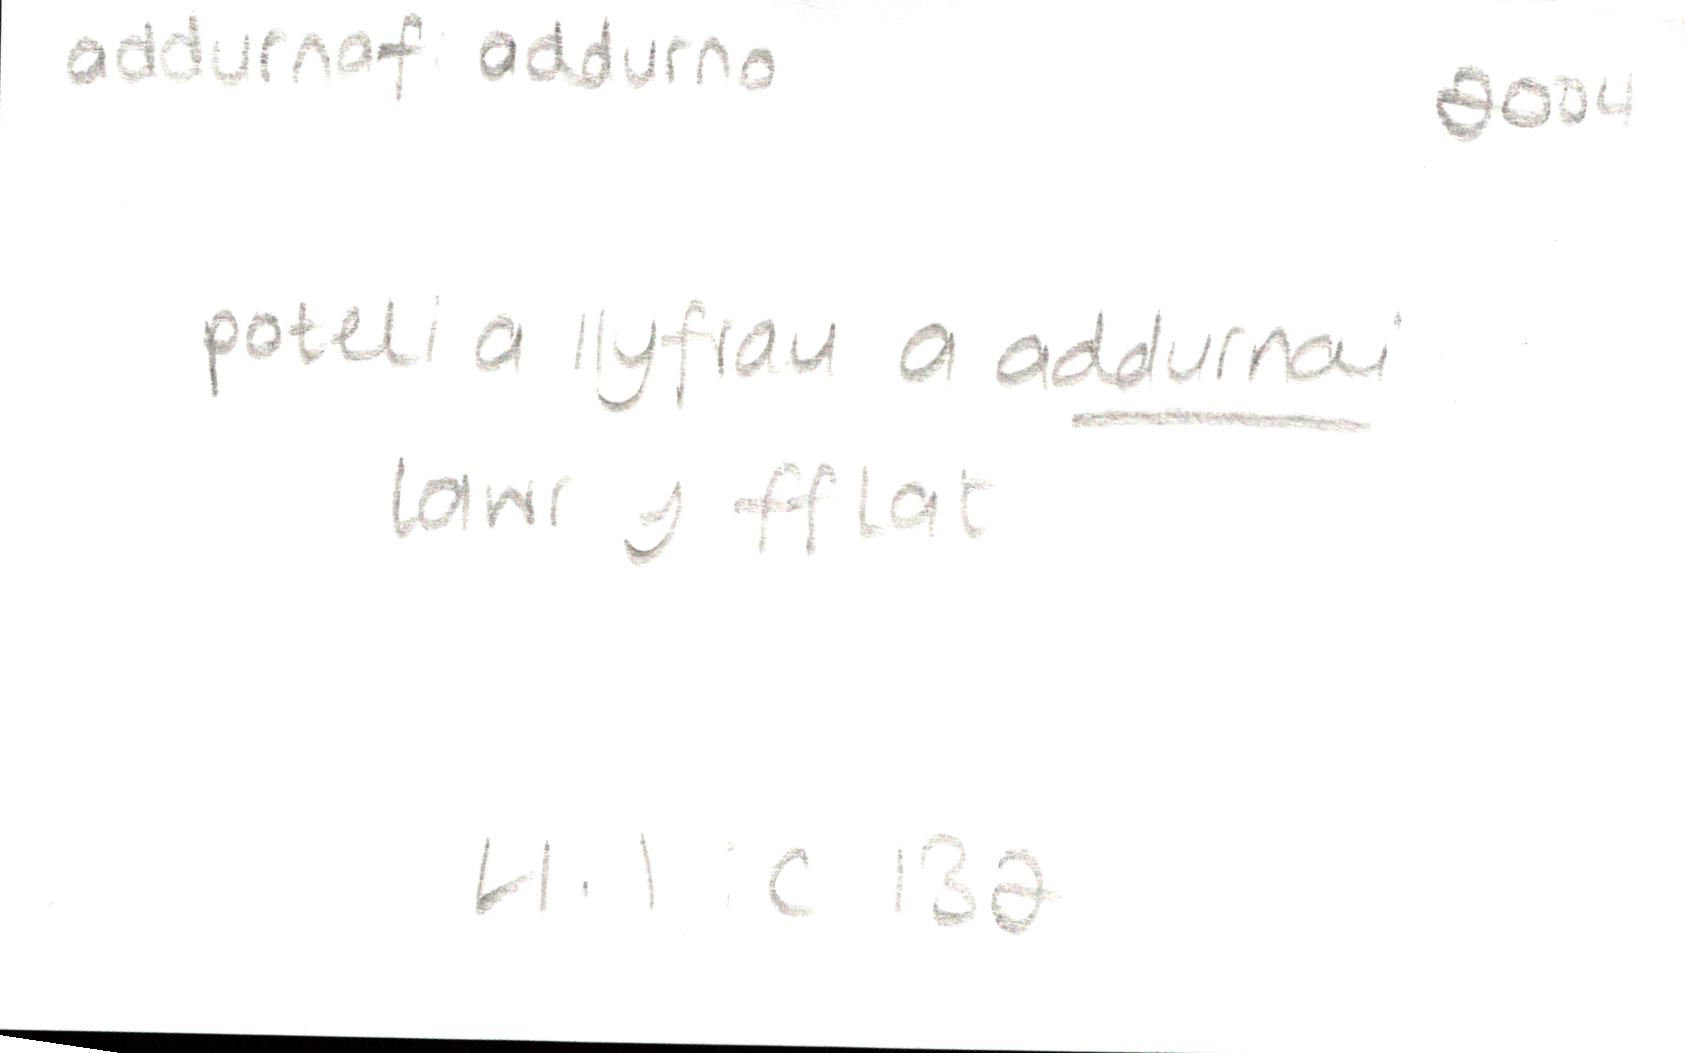 addurnaf: addurno
2004
poteli a llyfrau a addurnai
lawr y fflat
H.I : C 132